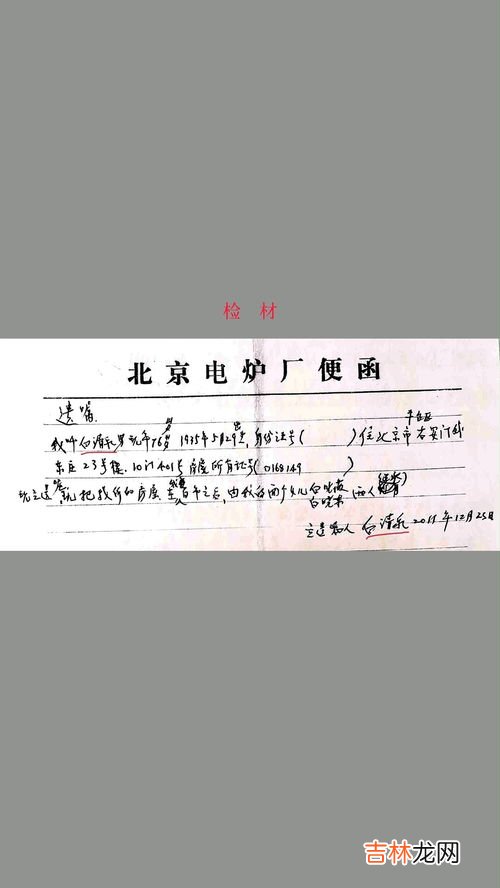 检 材
北京电炉厂便函
遗嘱
丰台区
我叫白清 男 现年76岁 1935年5月29 身份证号( )住北京市右安门外
东庄23号楼10门401号房屋所有证号(0168149 )
现立遗 把我 的房屋 百年之后,由我的两个儿 白 两人
白
立遗嘱人 白清 2011年12月25日
吉林龙网